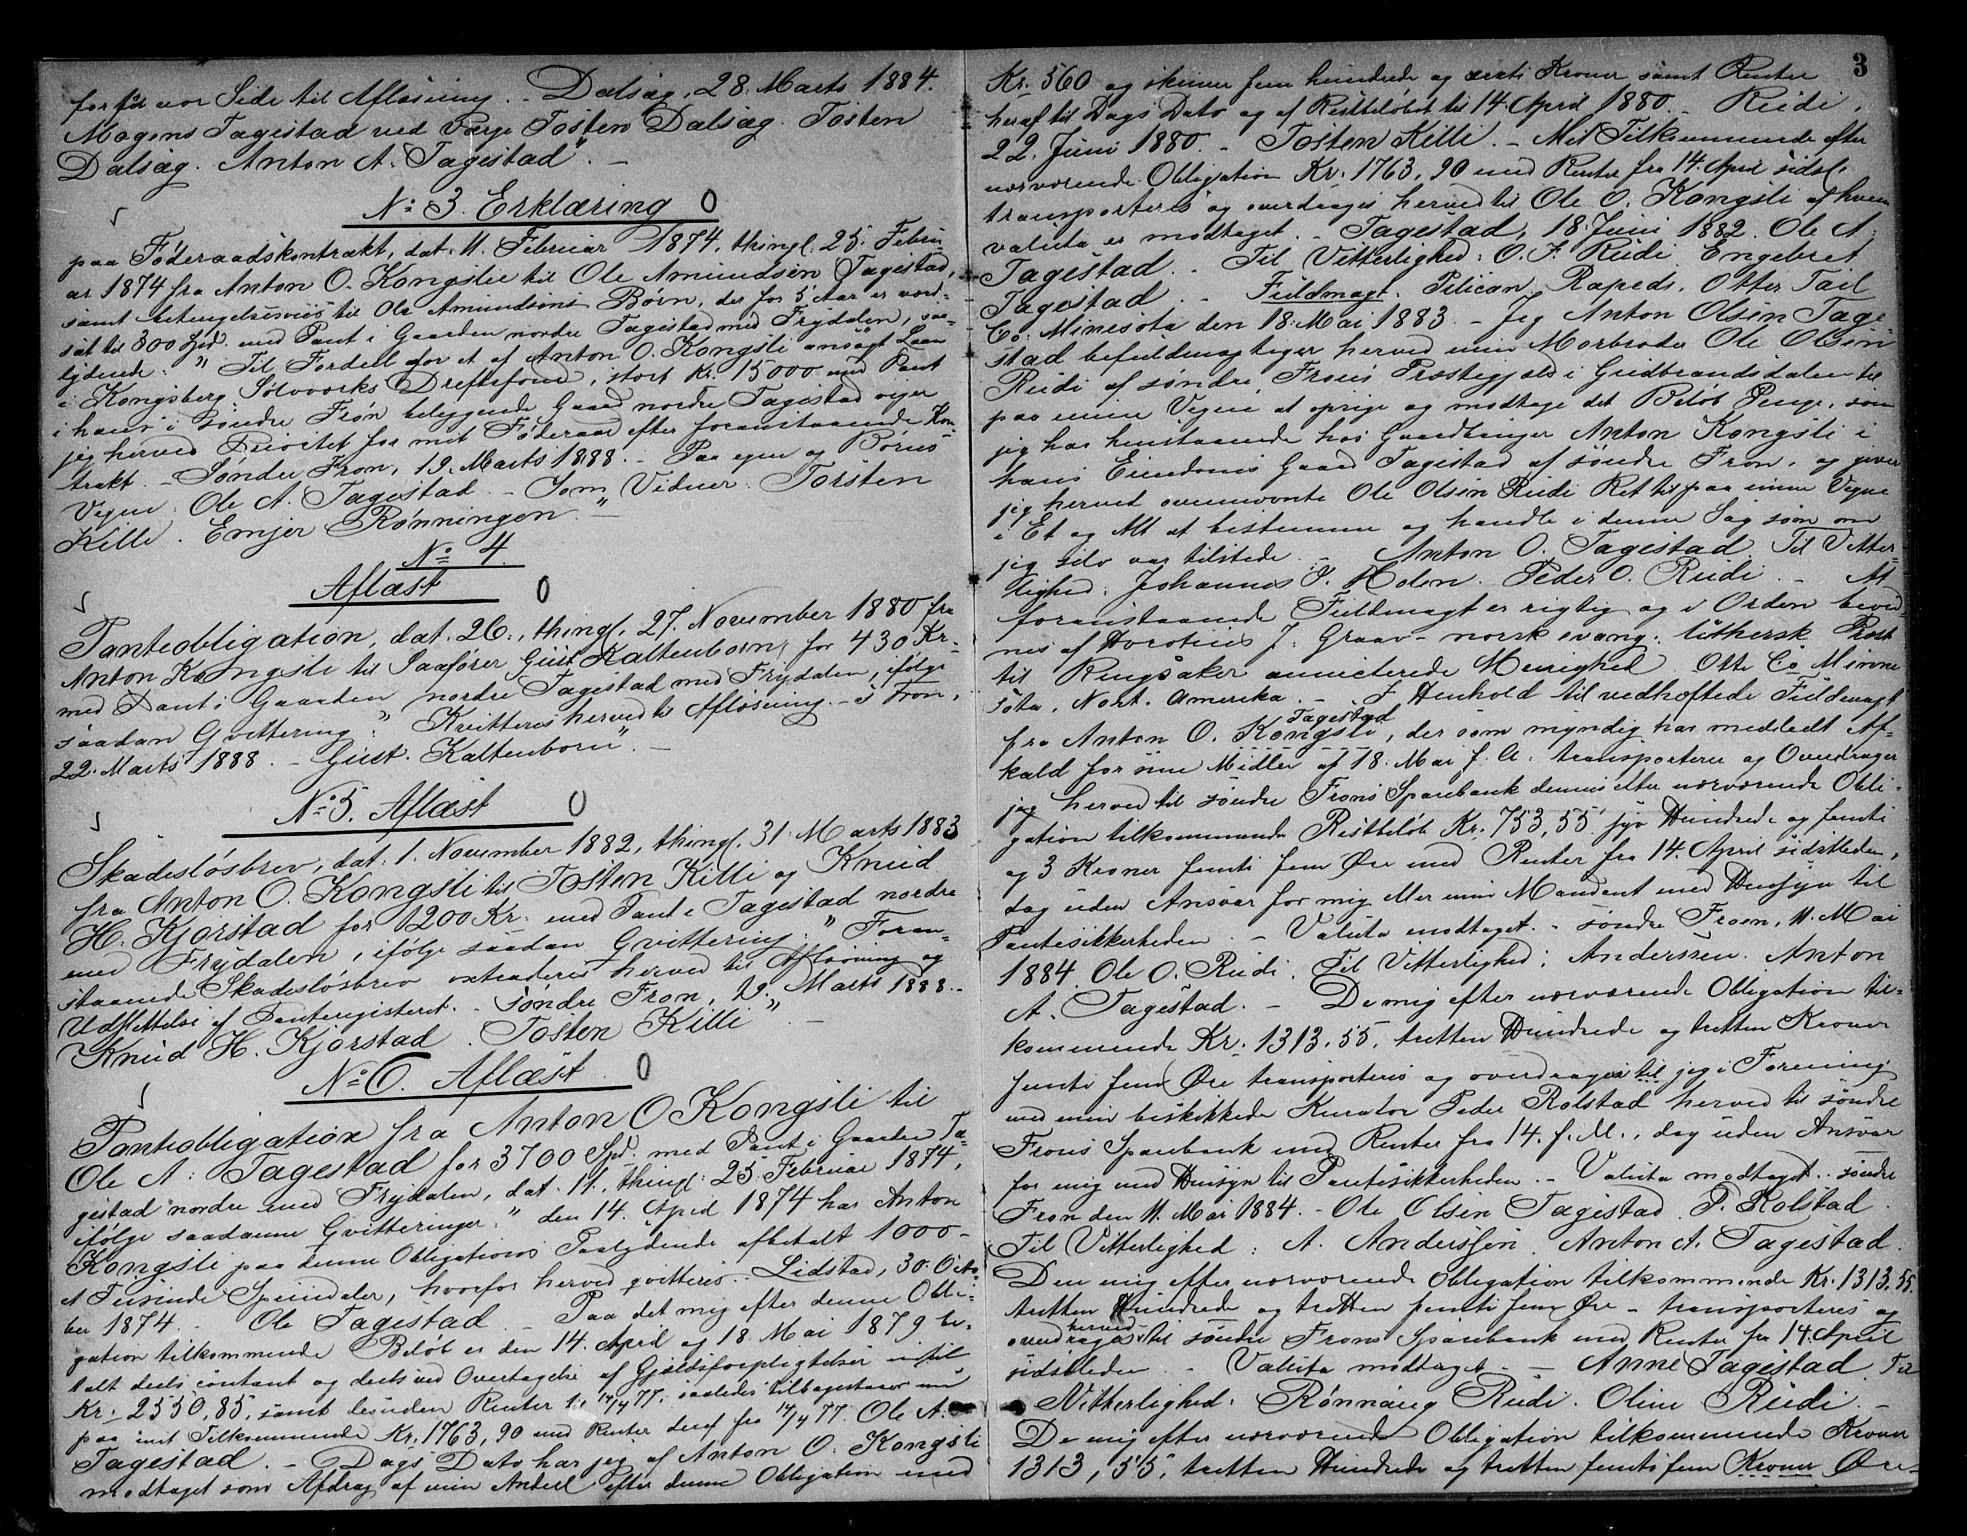 for fra vor Side til Afløsning. – Dalsæg, 28. Marts 1884.
Mogens Tagestad ved Værje Tosten Dalsæg. Tosten
Dalsæg. Anton A. Tagestad". –
No 3. Erklæring
paa Føderaadskontrakt, dat. 11. Februar 1874, thingl. 25. Febru-
ar 1874 fra Anton O. Kongslie til Ole Amundsen Tagestad,
samt betingelsesviis til Ole Amundsens Børn, der for 5 Aar er værd-
sat til 300 Spd. med Pant i Gaarden nordre Tagestad med Frydalen, saa-
lydende: " Til Fordeel for et af Anton O. Kongsli ansøgt Laan
i Kongsberg Sølvværks Driftsfond, stort Kr. 15000 med Pant
i hans i søndre Fron beliggende Gaard nordre Tagestad viger
jeg herved Prioritet for mit Føderaad efter foranstaaende Kon-
trakt. – Søndre Fron, 19. Marts 1888. – Paa egne og Børns
Vegne: Ole A. Tagestad. – Som Vidner: Torsten
Kille. Emjer Rønningen". –
No 4.
Aflæst
Panteobligation, dat. 26., thingl. 27. November 1880 fra
Anton Kongsli til Sagfører Gust Kaltenborn for 430 Kr.
med Pant i Gaarden nordre Tagestad med Frydalen, ifølge
saadan Qvittering: " Kvitteres herved til Afløsning. – S. Fron,
22. Marts 1888. – Gust. Kaltenborn". –
No 5. Aflæst
Skadesløsbrev, dat. 1. November 1882, thingl. 31. Marts 1883
fra Anton O. Kongsli til Tosten Killi og Knud
H. Kjorstad for 1200 Kr. med Pant i Tagestad nordre
med Frydalen, ifølge saadan Qvittering: " Foran-
staaende Skadesløsbrev extraderes herved til Afløsning og
Udslettelse af Panteregisteret. – Søndre Fron, Marts 1888. –
Knud H. Kjorstad. Tosten Killi". –
No 6. Aflæst
Panteobligation fra Anton O Kongsli til
Ole A. Tagestad for 3700 Spd. med Pant i Gaarden Ta-
gestad nordre med Frydalen, dat. 11., thingl. 25. Februar 1874,
ifølge saadanne Qvitteringer: " den 14. April 1874 har Anton
Kongsli paa denne Obligations Paalydende afbetalt 1000 –
et Tusinde Speciedaler, hvorfor herved qvitteres. – Lidstad, 30. Octo-
ber 1874. – Ole Tagestad. – Paa det mig efter denne Obli-
gation tilkommende Beløb er den 14. April og 18 Mai 1879 be-
talt deels contant og deels ved Overtagelse af Gjældsforpligtelser
Kr. 2550,85, samt desuden Renter til 14/4 77, saaledes tilbagestaar nu
paa mit Tilkommende Kr. 1763,90 med Renter deraf fra 14/4 77. Ole A.
Tagestad. – Dags Dato har jeg af Anton O. Kongsli
modtaget som Afdrag af min Andeel efter denne Obligation med
3
Kr. 560 og skriver fem hundrede og sexti Kroner samt Renter
heraf til Dags Dato og af Restbeløbet til 14 April 1880. – Rudi,
22. Juni 1880. – Tosten Killi. – Mit Tilkommende efter
nærværende Obligation Kr. 1763,90 med Renter fra 14. April sidstl.
transporteres og overdrages herved til Ole O. Kongsli af hvem
valuta er modtaget. – Tagestad, 18. Juni 1882. Ole A.
Tagestad. – Til Vitterlighed: O. J. Rudi. Engebret
Tagestad. – Fuldmagt. Pilican Rapeds, Otter Tail
Co. Minesota den 18. Mai 1883. – Jeg Anton Olsen Tage-
stad befuldmægtiger herved min Morbroder Ole Olsen
Rudi af søndre Frons Præstegjæld i Gudbrandsdalen til
paa mine Vegne at opsige og modtage det Beløb Penge, som
jeg har henstaaende hos Gaardbruger Anton Kongsli i
hans Eiendoms Gaard Tagestad af søndre Fron, og giver
jeg herved ovennævnte Ole Olsen Rudi Ret til paa mine Vegne
i Et og Alt at bestemme og handle i denne Sag som om
jeg selv var tilstede. – Anton O. Tagestad. Til Vitter-
lighed: Johannes J. Moen. Peder O. Rudi. – At
foranstaaende Fuldmagt er rigtig og i Orden bevid-
nes af Dorotius J. Graav – norsk evang. luthersk Præst
til Ringsaker annicterede Menighed. Otte Co Minne-
sota, Nort. Amerika. – I Henhold til vedhæftede Fuldmagt
fra Anton O. Kongsli Tagestad, der som myndig har meddelt Af-
kald for sine Midler af 18. Mai f. A. transporterer og Overdrager
jeg herved til søndre Frons Sparebank dennes efter nærværende Obli-
gation tilkommende Restbeløb Kr. 753,55 syv Hundrede og femti
og 3 Kroner femti fem Øre med Renter fra 14. April sidstleden,
dog uden Ansvar for mig eller min Mandant med Hensyn til
Pantesikkerheden. – Valuta modtaget. – søndre Froen, 11. Mai
1884. Ole O. Rudi. Til Vitterlighed: Anderssen. Anton
A. Tagestad. – De mig efter nærværende Obligation til-
kommende Kr. 1313,55, tretten Hundrede og tretten Kroner
femti fem Øre transporteres og overdrages til jeg i Forening
med min beskikkede Kurator Peder Rolstad herved til søndre
Frons Sparebank med Renter fra 14. f. M., dog uden Ansvar
for mig med Hensyn til Pantesikkerheden. – Valuta modtaget. – søndre
Fron den 11. Mai 1884. – Ole Olsen Tagestad. P. Kolstad.
Til Vitterlighed: A. Anderssen. Anton A. Tagestad.
Den mig efter nærværende Obligation tilkommende Kr. 1313,55.
tretten Hundrede og tretten femti fem Øre – transporteres og
overdrages herved til søndre Frons Sparebank med Renter fra 14. April
sidstleden. – Valuta modtaget. – Anne Tagestad. Til
Vitterlighed: Rønnaug Rudi. Oline Rudi. –
De mig efter nærværende Obligation tilkommende Kroner
1313,55, tretten Hundrede og tretten femti fem Kroner Øre –